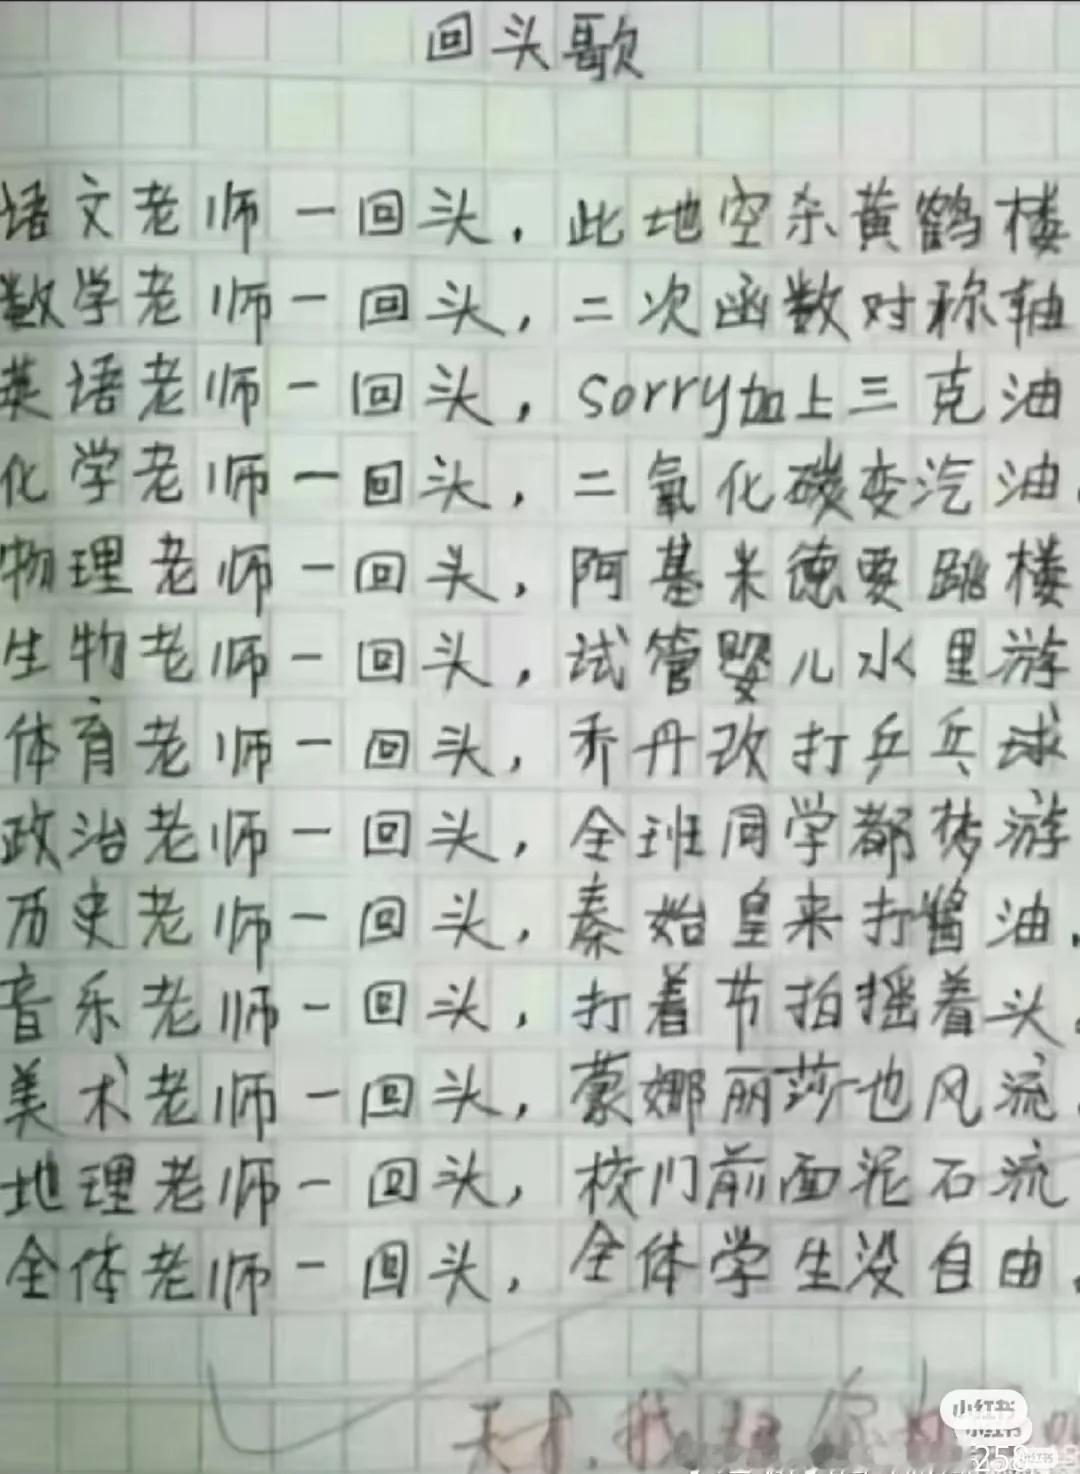 回头歌
语文老师一回头，此地空杀黄鹤楼
数学老师一回头，二次函数对称轴
英语老师一回头，sorry加上三克油
化学老师一回头，二氧化碳变汽油.
物理老师一回头，阿基米德要跳楼
生物老师一回头，试管婴儿水里游
体育老师一回头，乔丹改打乒乓球
政治老师一回头，全班同学都梦游
历史老师一回头，秦始皇来打酱油.
音乐老师一回头，打着节拍摇着头.
美术老师一回头，蒙娜丽莎也风流.
地理老师一回头，校门前面泥石流
全体老师一回头，全体学生没自由.
天才.我
小红书